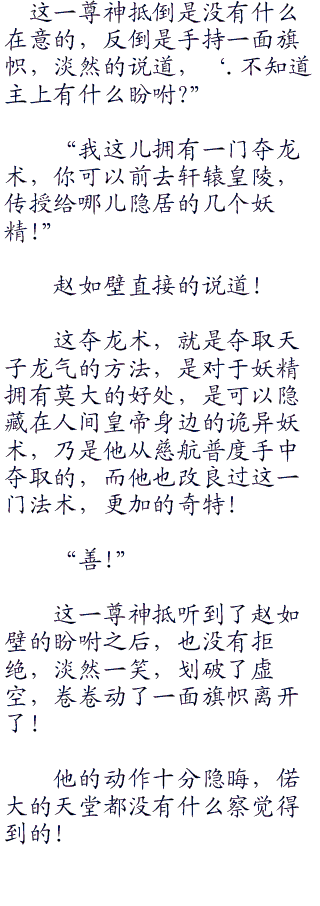 这一尊神抵倒是没有什么
在意的，反倒是手持一面旗
帜，淡然的说道，‘．不知道
主上有什么盼咐?”
“我这儿拥有一门夺龙
术，你可以前去轩辕皇陵，
传授给哪儿隐居的几个妖
精!”
赵如壁直接的说道!
这夺龙术，就是夺取天
子龙气的方法，是对于妖精
拥有莫大的好处，是可以隐
藏在人间皇帝身边的诡异妖
术，乃是他从慈航普度手中
夺取的，而他也改良过这一
门法术，更加的奇特!
“善!”
这一尊神抵听到了赵如
壁的盼咐之后，也没有拒
绝，淡然一笑，划破了虚
空，卷卷动了一面旗帜离开
了!
他的动作十分隐晦，偌
大的天堂都没有什么察觉得
到的!